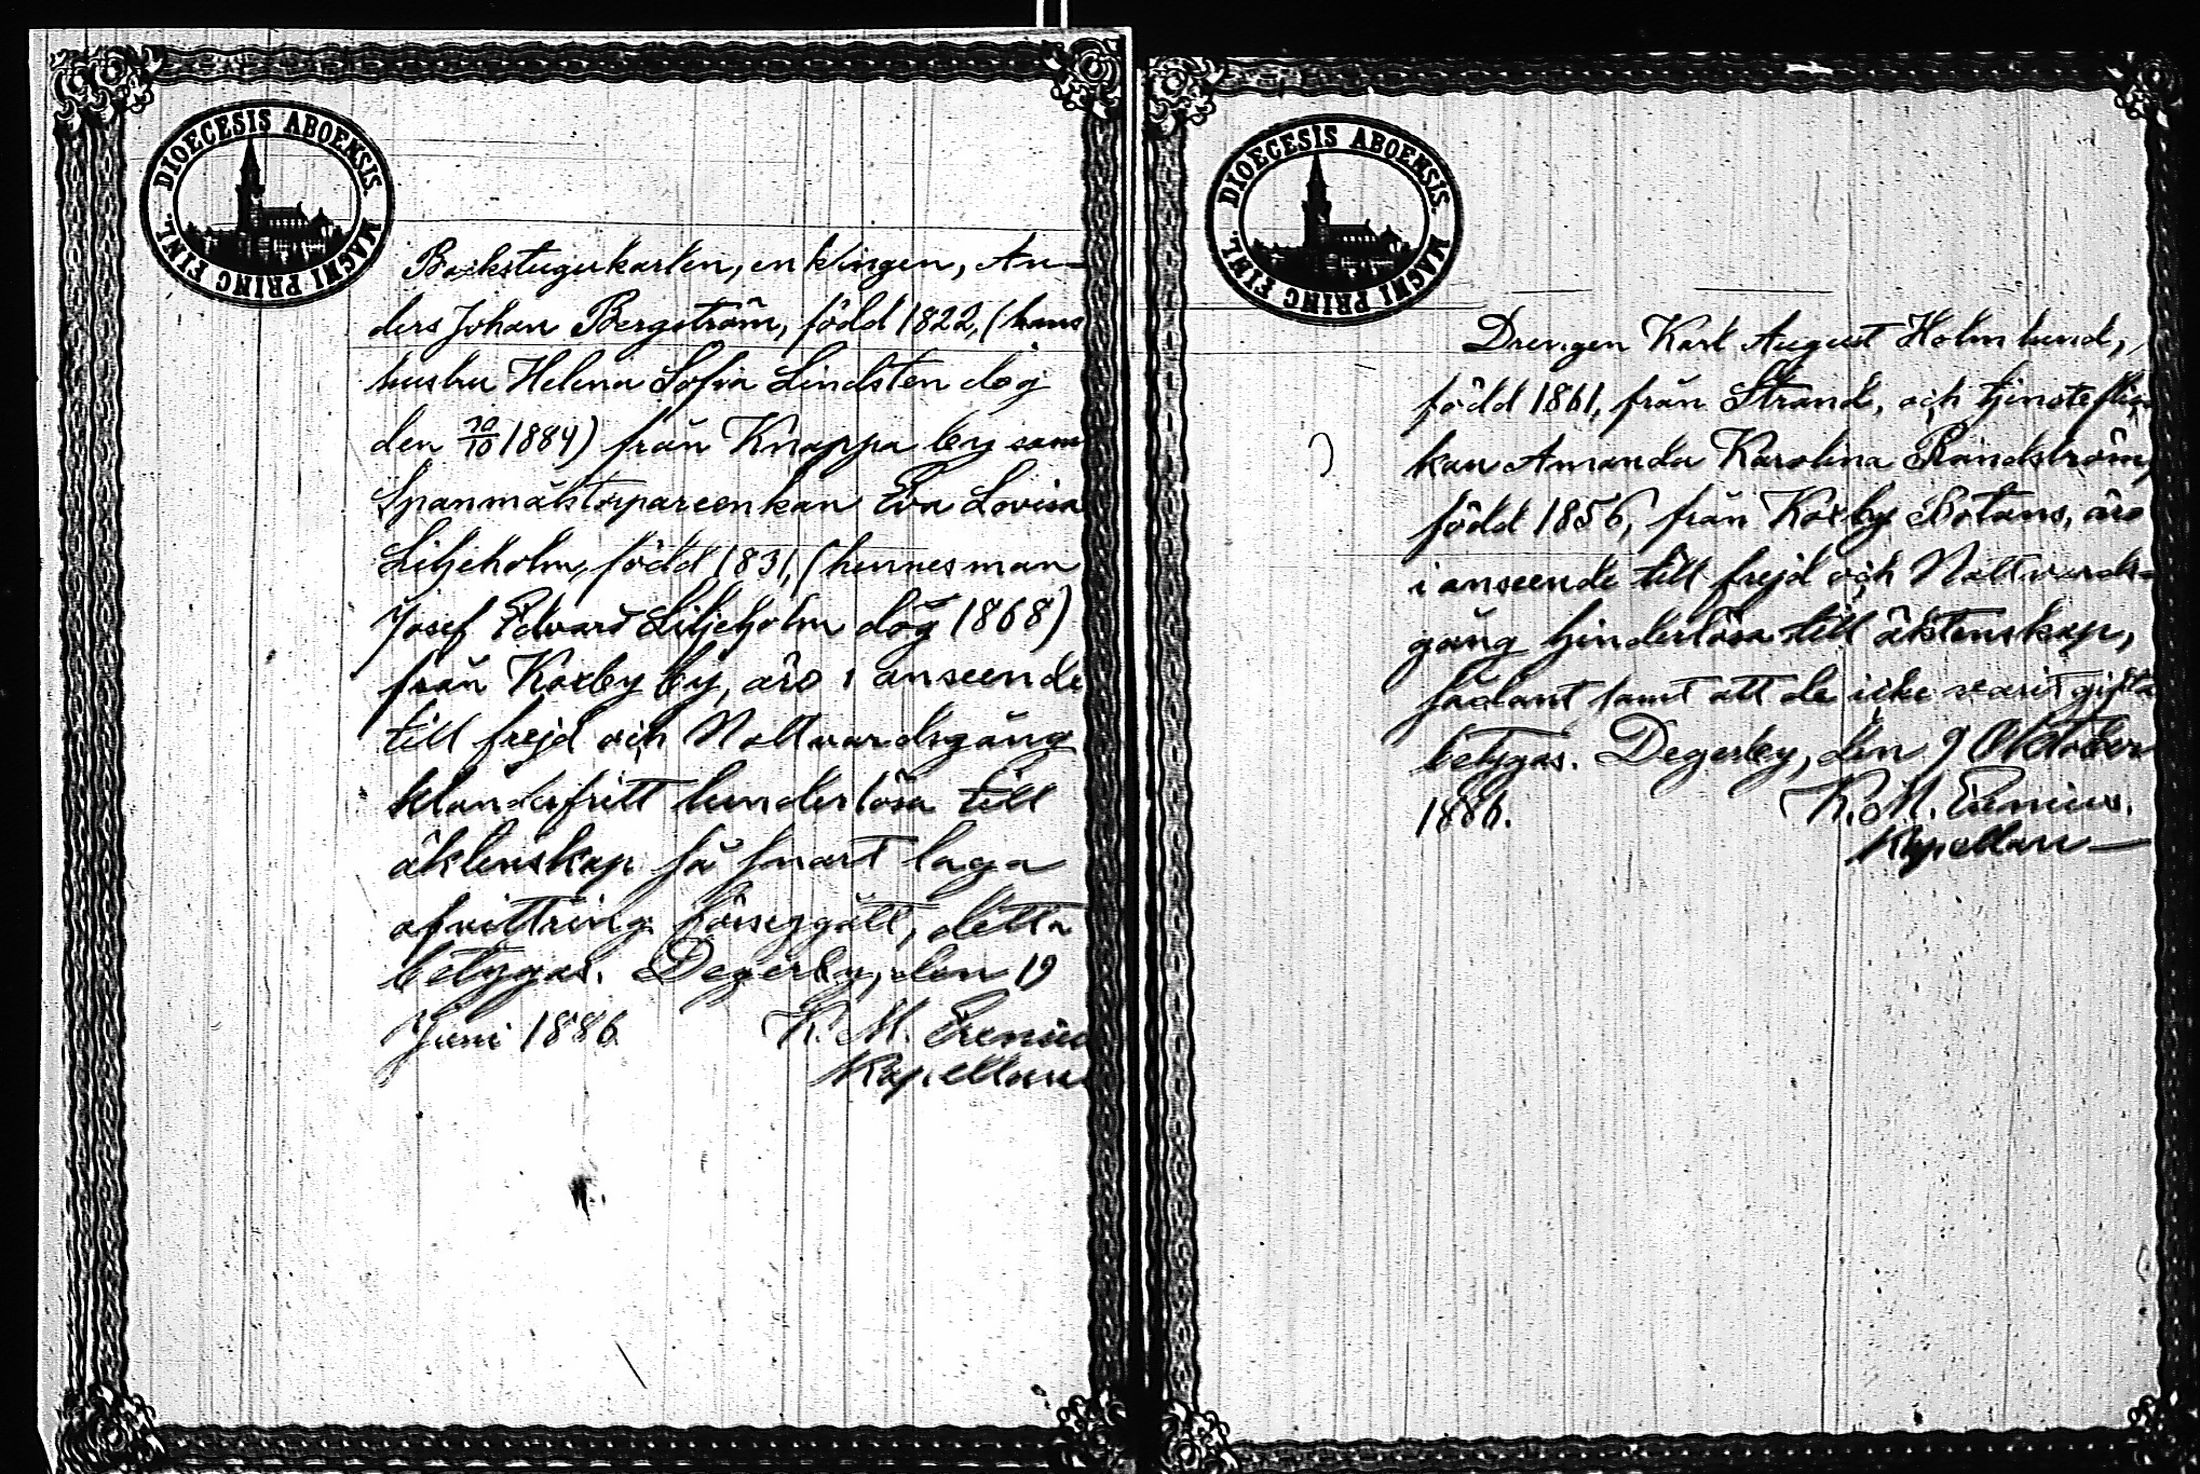 DIOECESIS ABOENSIS. MAGNI PRINC FINL.
Backstugukarlen, enklingen, An-
ders Johan Bergström, född 1822, (hans
hustru Helena Sofia Lindsten dog
den 1884) från Knappa by samt
Spanmålstorpareenkan Eva Lovisa
Liljeholm, född 1831, (hennes man
Josef Edvard Liljeholm dog 1868)
från Kaxby by, äro i anseende
till frejd och Nattvardsgång
klanderfritt hinderlösa till
äktenskap så snart laga
afvittring försiggått, detta
betygas. Degerby, den 19
Juni 1886. K. M. Erenius
Kapellan
DIOECESIS ABOENSIS. MAGNI PRINC FINL.
Drengen Karl August Holmlund,
född 1861, från Strand, och tjensteflic
kan Amanda Karolina Randström,
född 1856, från Kaxby Botans, äro
i anseende till frejd och Nattvards-
gång hinderlösa till äktenskap,
sådant samt att de icke varit gifta
betygas. Degerby, den 9 Oktober
1886. K. M. Erenius.
Kapellan